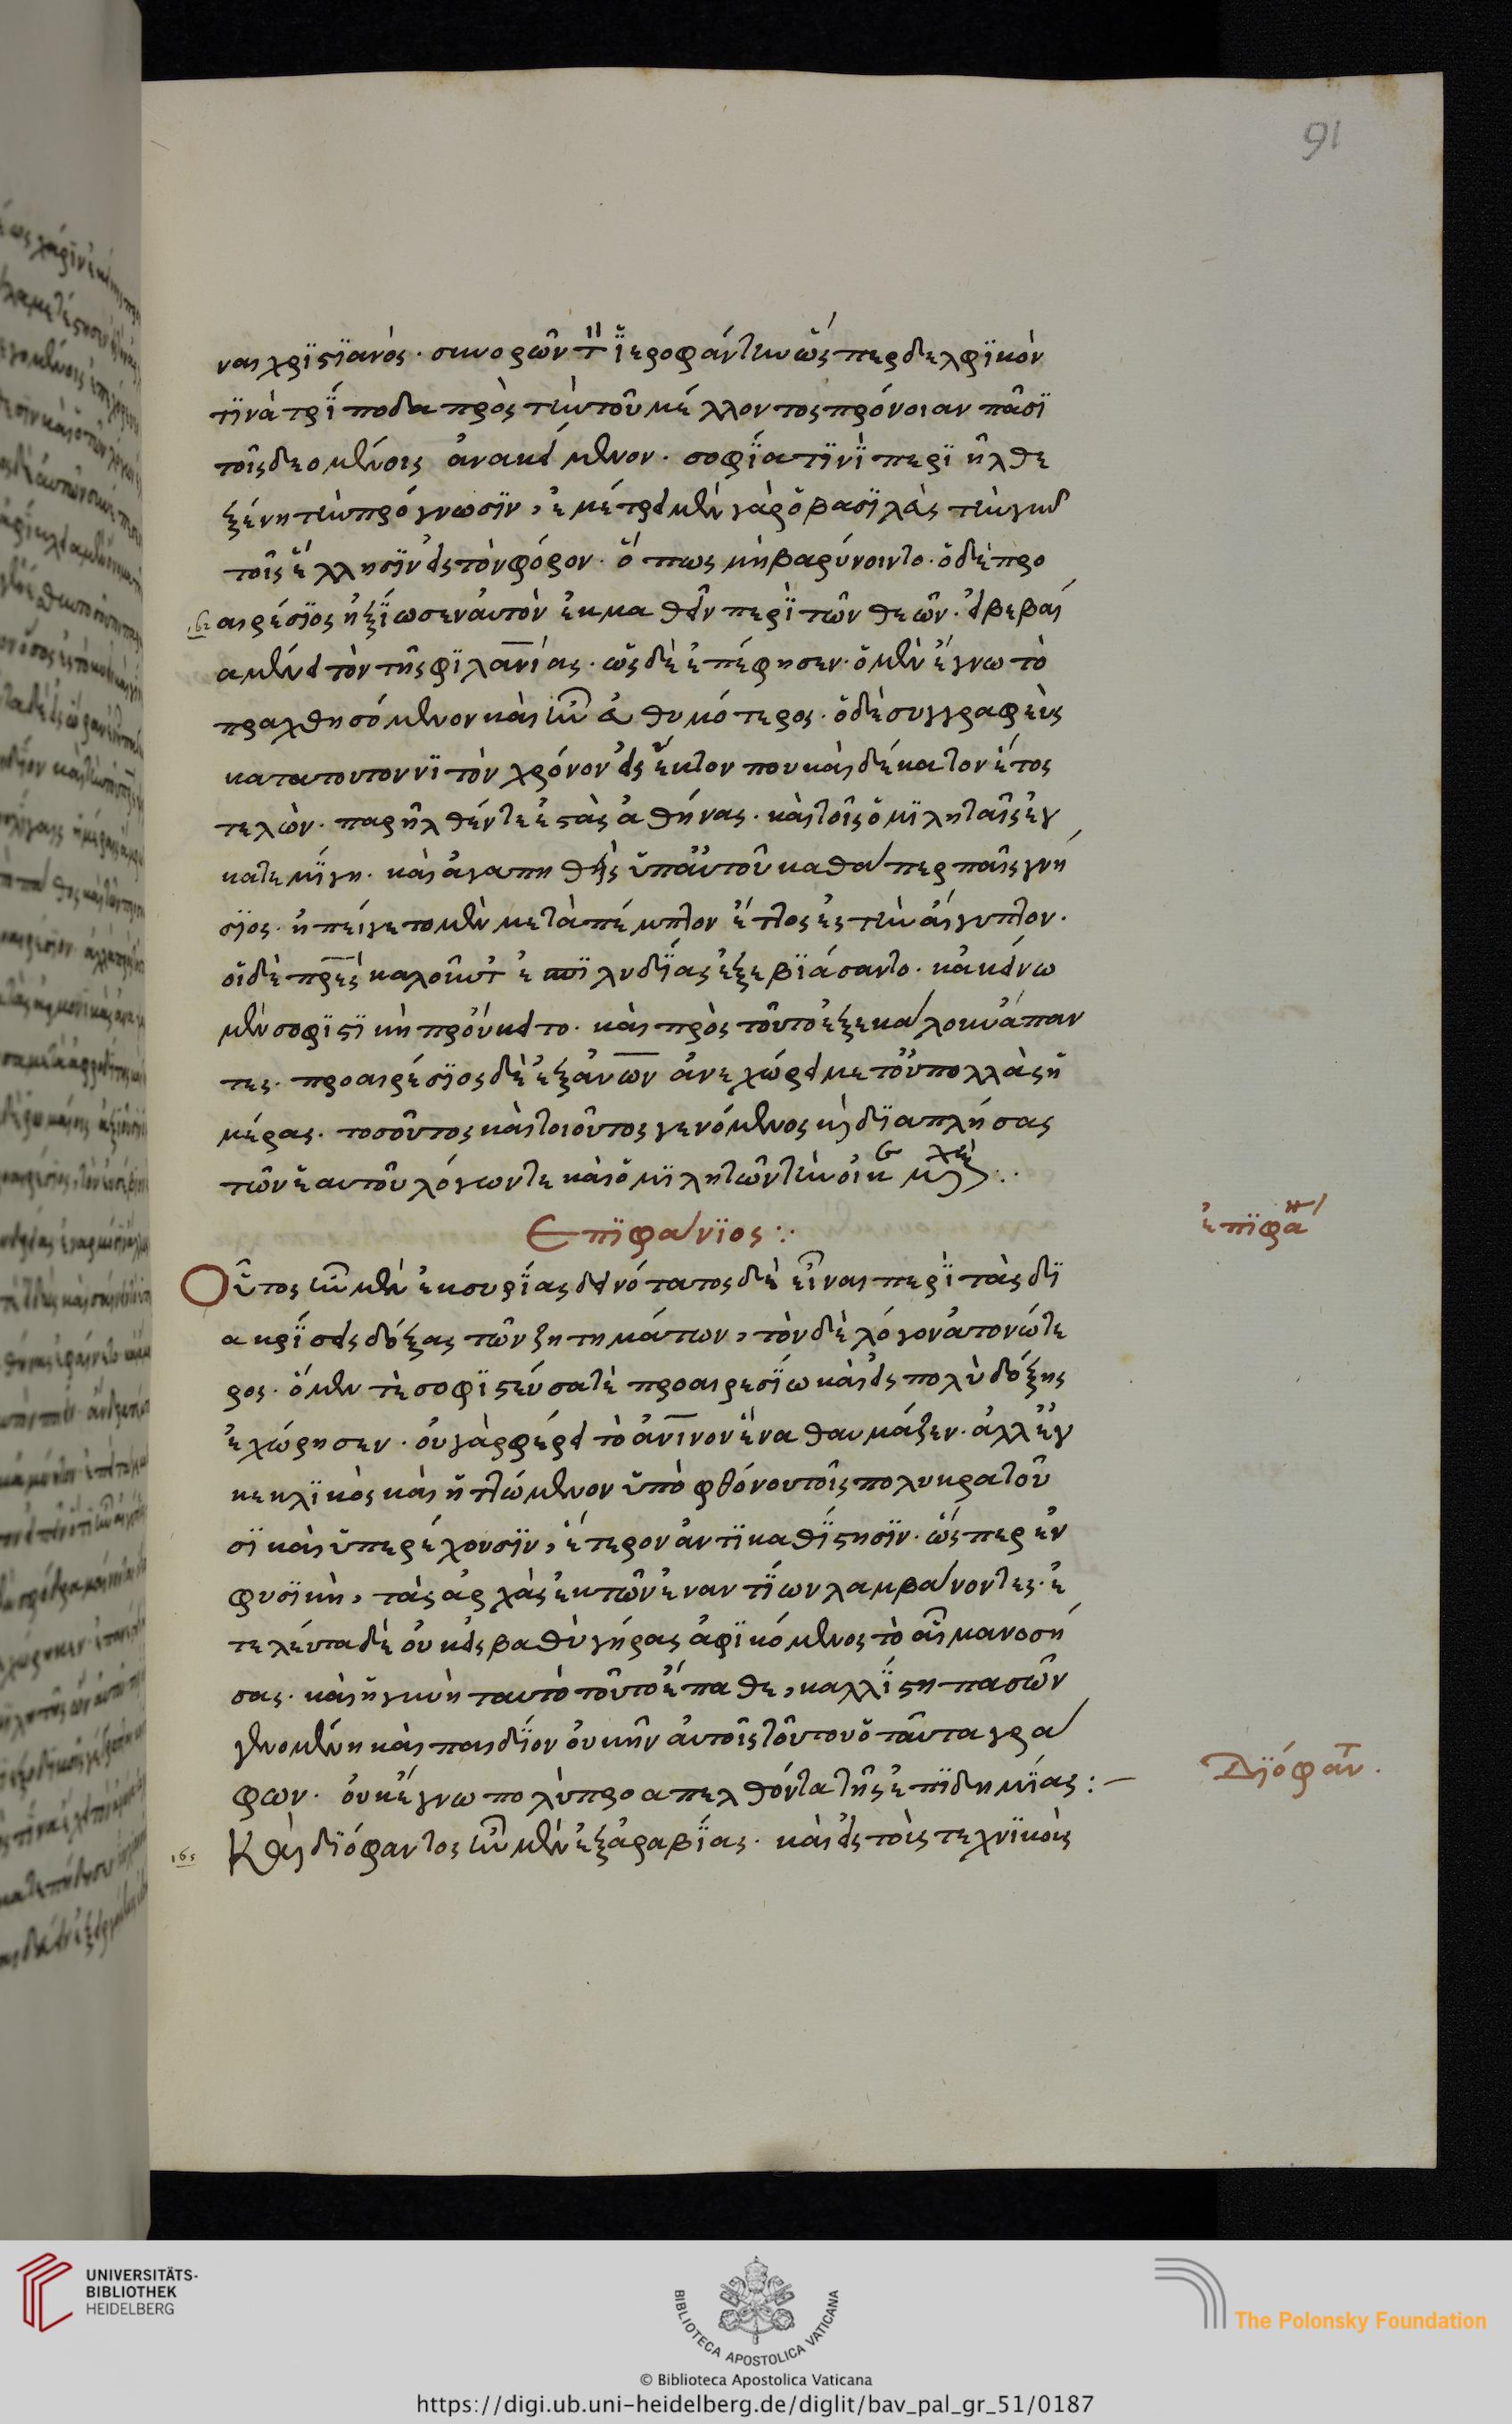 91
ναι χρϊστϊανός. συνορῶν τ ϊεροφάντην ὥσπερ δελφϊκόν
τϊνὰ τρΐποδα πρὸς τὴν τοῦ μέλλοντος πρόνοιαν πᾶσϊ
τοῖς δεομένοις ἀνακείμενον. σοφΐα τϊνϊ περιῆλθε
ξένη τὴν πρόγνωσϊν, ἐμέτρει μὲν γὰρ ὁ βασϊλεὺς τὴν γῆν
τοῖς ἕλλησϊν εἰς τὸν φόρον. ὅπως μὴ βαρύνοιντο. ὁ δὲ προ
165 αιρέσϊος ἠξΐωσεν αὐτὸν ἐκμαθεῖν περὶ τῶν θεῶν. εἰ βεβαί
α μένει τὸν τῆς φϊλανίας. ὡς δὲ ἐπέφησεν. ὁ μὲν ἔγνω τὸ
πραχθησόμενον καὶ ἦν εὐθυμότερος. ὁ δὲ συγγραφεὺς
κατατουτοννϊ τὸν χρόνον εἰς ἕκτον που καὶ δέκατον ἔτος
τελῶν. παρῆλθέν τε ἐς τὰς ἀθήνας. καὶ τοῖς ὁμϊληταῖς ἐγ
κατεμΐγη. καὶ ἀγαπηθεὶς ὑπ αὐτοῦ καθάπερ παῖς γνή
σϊος. ἠπείγετο μὲν μετὰ πέμπτον ἔτος ἐς τὴν αἴγυπτον.
οἱ δὲ πρες καλοῦντ ἐπϊ λυδΐας ἐξεβϊάσαντο. κἀκείνω
μὲν σοφϊστϊκὴ προὔκειτο. καὶ πρὸς τοῦτο ἐξεκάλουν ἅπαν
τες. προαιρέσϊος δὲ ἐξ ἀνων ἀνεχώρει μετ οὐ πολλὰς ἡ
μέρας. τοσοῦτος καὶ τοιοῦτος γενόμενος καὶ δϊαπλήσας
τῶν ἑαυτοῦ λόγων τε καὶ ὁμϊλητῶν τὴν οἰκ
Επϊφάνϊος:·
ἐπϊφα
Οὗτος ἦν μὲν ἐκ συρΐας δεινότατος δὲ εἶναι περὶ τὰς δϊ
ακρΐσεις δόξας τῶν ζητημάτων, τὸν δὲ λόγον ἀτονώτε
ρος. ὅμεν τὲ σοφϊστεύσατὲ προαιρεσΐω καὶ εἰς πολὺ δόξης
ἐχώρησεν. οὐ γὰρ φέρει τὸ ἀνινον ἕνα θαυμάζεν. ἀλλ ἐγ
κεκλϊκὸς καὶ ἡττώμενον ὑπὸ φθόνου τοῖς πολυκρατοῦ
σϊ καὶ ὑπερέχουσϊν, ἕτερον ἀντϊκαθΐστησϊν. ὥσπερ ἐν
φυσϊκῇ, τὰς ἀρχὰς ἐκ τῶν ἐναντΐων λαμβάνοντες. ἐ
τελέυτα δὲ οὐκ εἰς βαθὺ γήρας ἀφϊκόμενος τὸ αἷμα νοσή
σας. καὶ ἡ γυνὴ ταυτὸ τοῦτο ἔπαθε, καλλΐστη πασῶν
γενομένη καὶ παιδΐον οὐκ ἦν αὐτοῖς τοῦτον ὁ ταῦτα γρά
φων. οὐκ ἔγνω πολὺ προαπελθόντα τῆς ἐπϊδημΐας:–
Δϊόφαν.
165 Καὶ δϊόφαντος ἦν μὲν ἐξ ἀραβΐας. καὶ εἰς τοὺς τεχνϊκοὺς
UNIVERSITÄTS-
BIBLIOTHEK
HEIDELBERG
BIBLIOTECA APOSTOLICA VATICANA
The Polonsky Foundation
© Biblioteca Apostolica Vaticana
https://digi.ub.uni-heidelberg.de/diglit/bav_pal_gr_51/0187